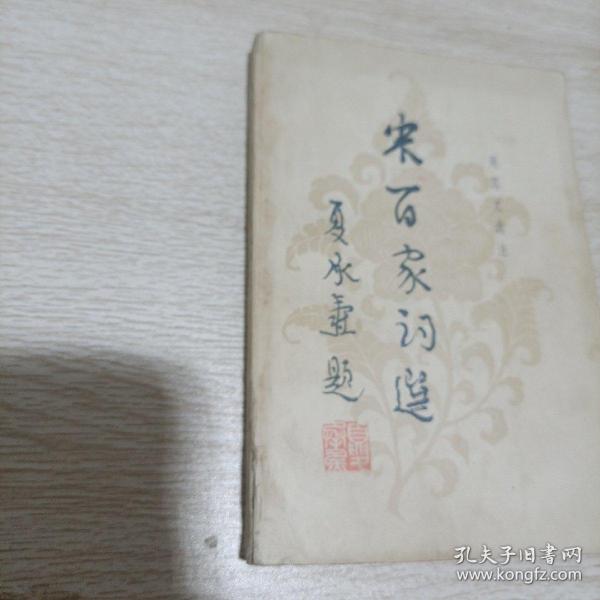 宋百家詞選
夏承燾題
孔夫子旧书网
www.kongfz.com